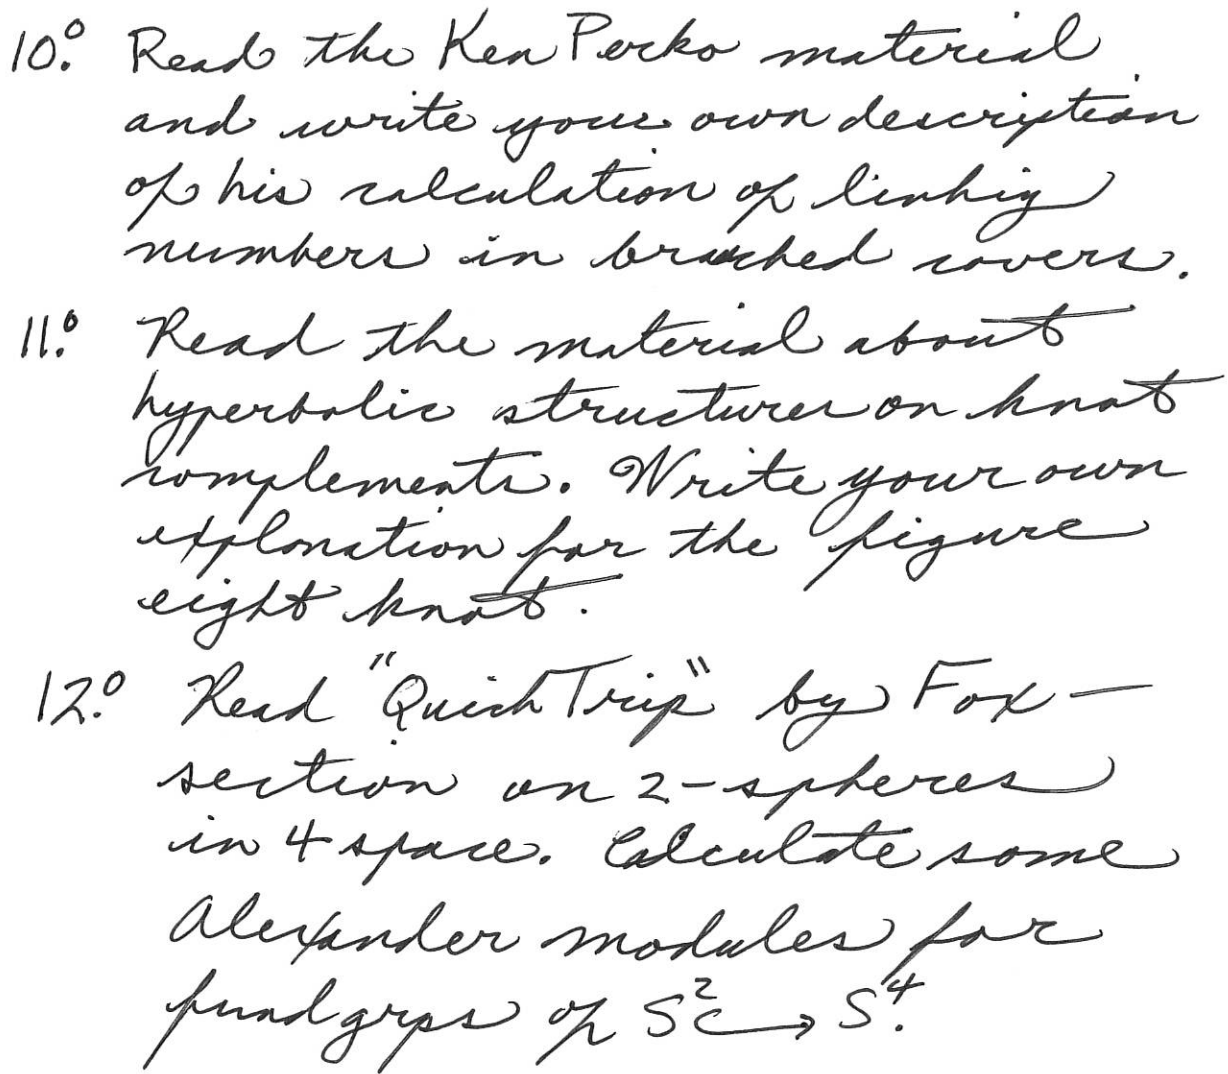 10.° Read the Ken Perko material
and write your own description
of his calculation of linkig
numbers in branched covers.
11.° Read the material about
hyperbolic structures on knot
complements. Write your own
explanation for the figure
eight knot.
12.° Read "Quick Trip" by Fox —
section on 2-spheres
in 4 space. Calculate some
Alexander modules for
fund grps of S² ↪ S⁴.